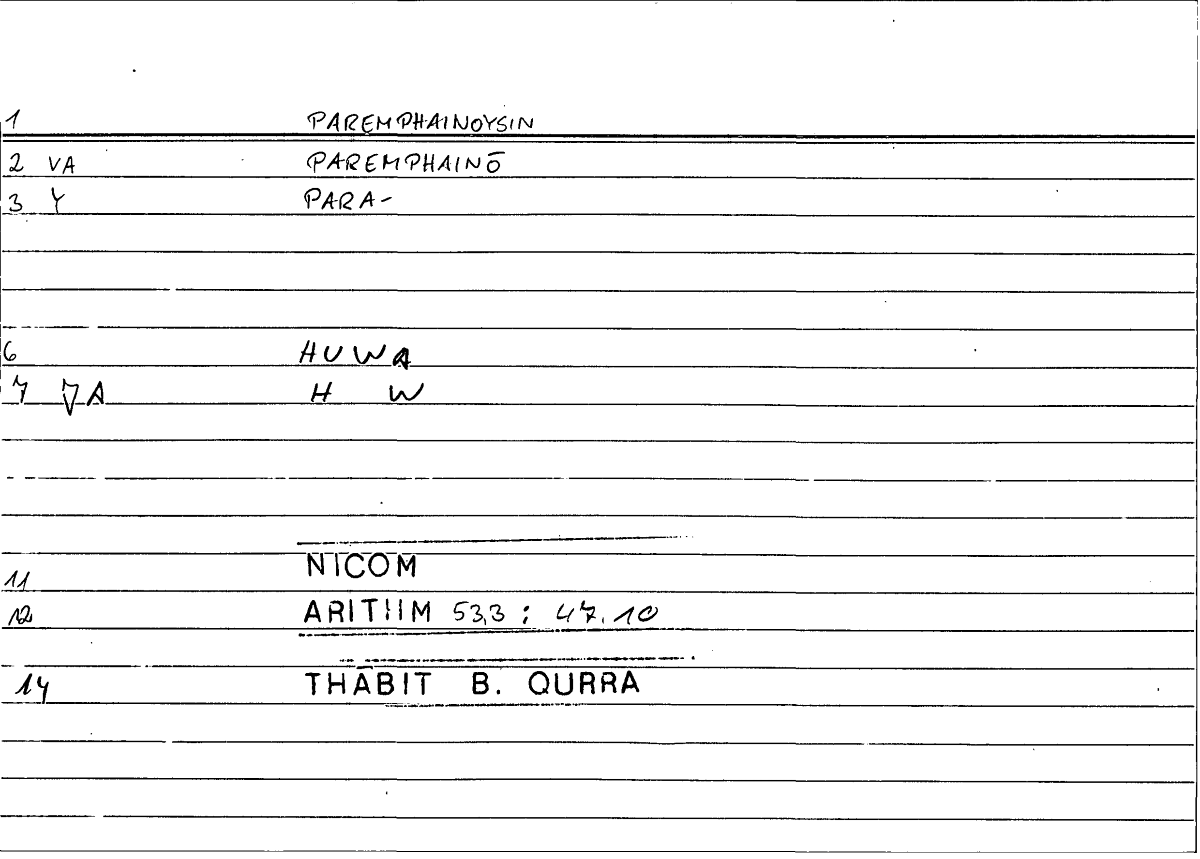 1 PAREMPHAINOYSIN
2 VA PAREMPHAINŌ
3 Y PARA-
6 HUWA
7 VA H W
11 NICOM
12 ARITHM 53,3 : 47.10
14 THABIT B. QURRA